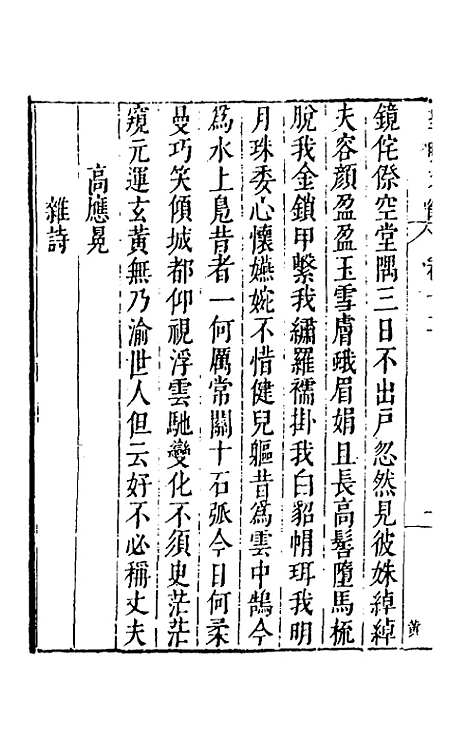 鏡侘傺空堂隅三日不出戸忽然見彼姝綽綽
夫容顔盈盈玉雪膚蛾眉娟且長高髻墮馬梳
脫我金鎖甲繫我繡羅襦掛我白貂帩珥我明
月珠委心懷嬿婉不惜健兒軀昔為雲中鵠今
為水上鳧昔者一何厲常關十石弧今日何柔
曼巧笑傾城都仰視浮雲馳變化不須史茫茫
窺元運玄黃無乃渝世人但云好不必稱丈夫
高應冕
雜詩